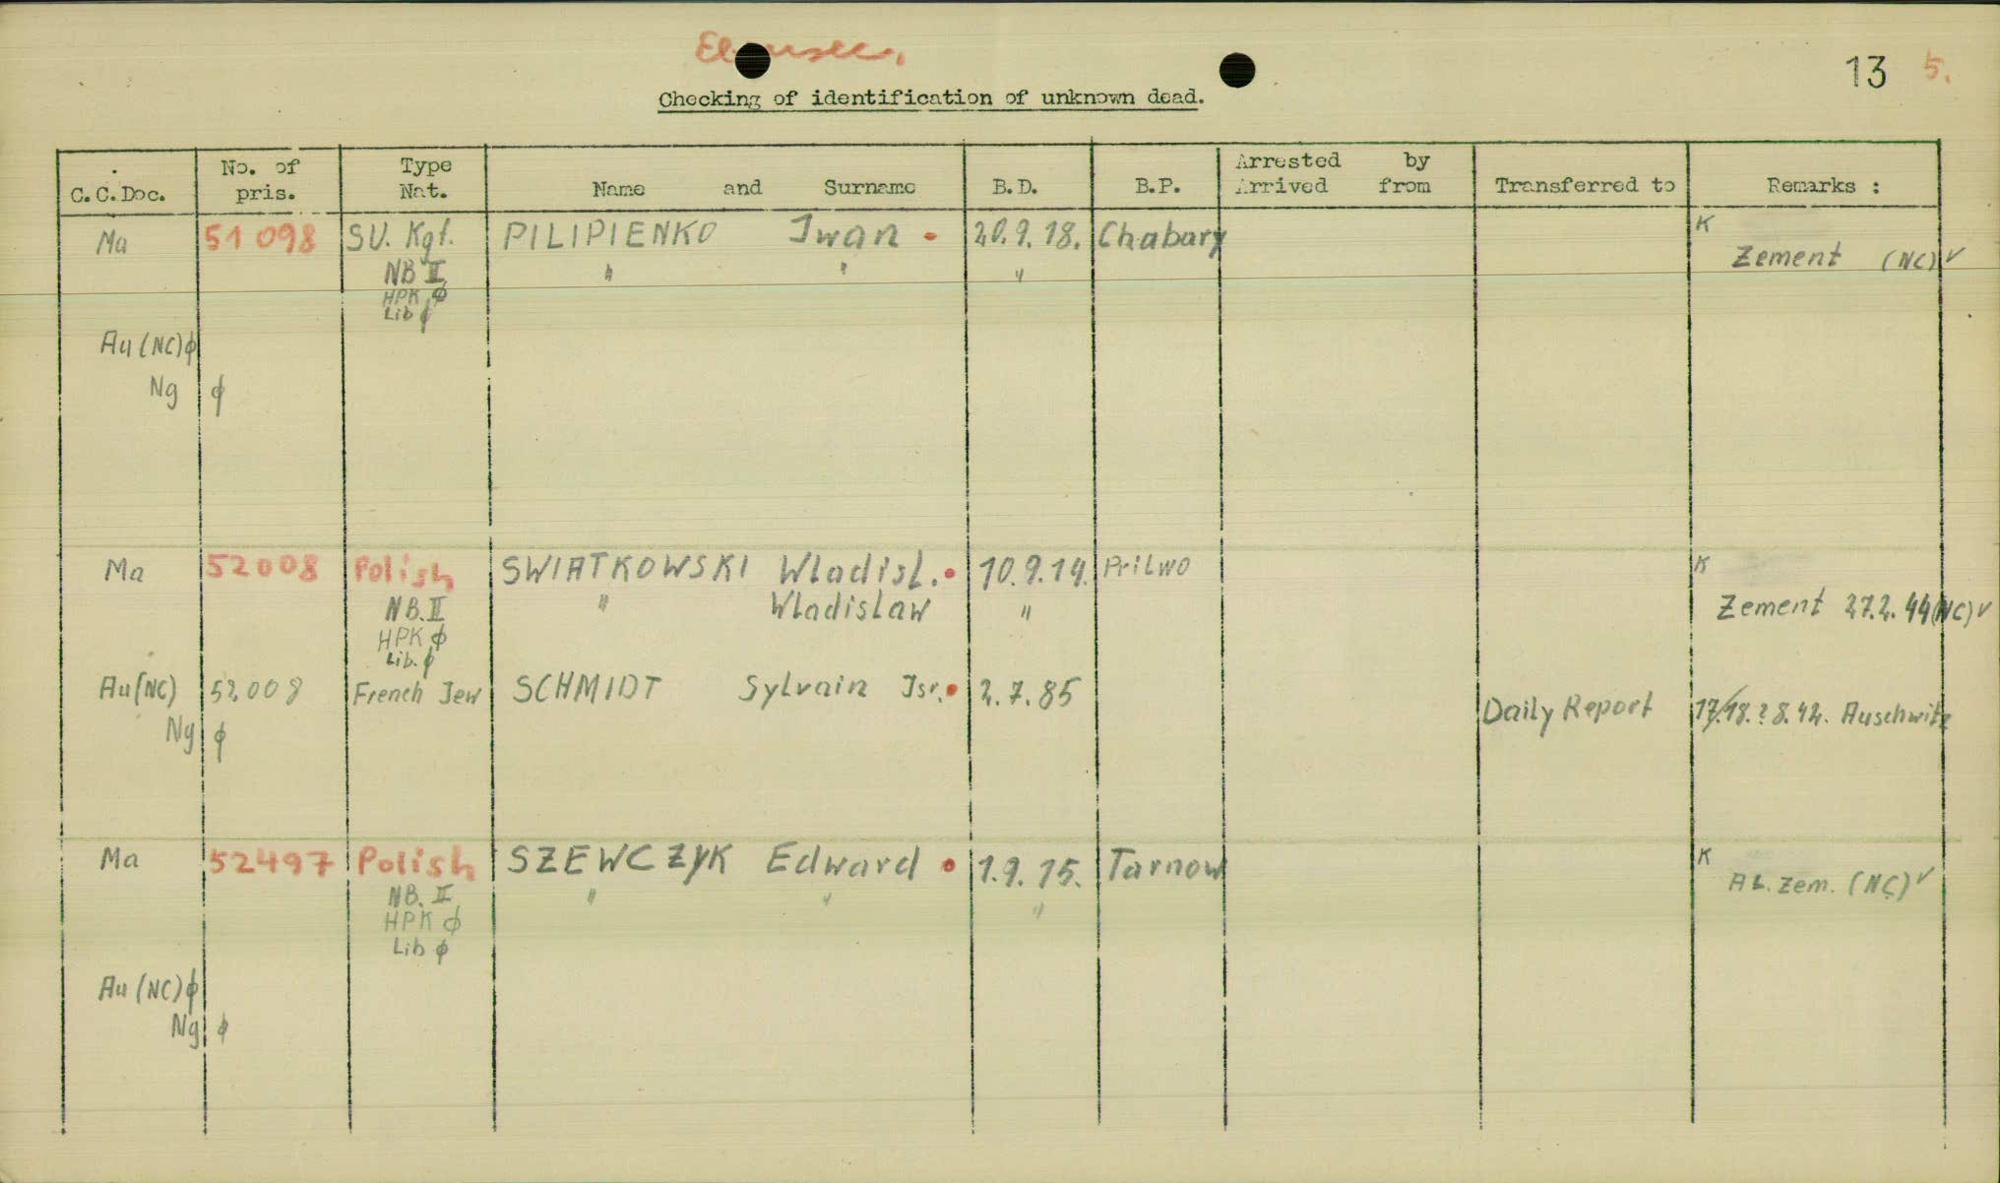 Ebensee.
13 5.
Checking of identification of unknown dead.
C.C.Doc. No. of pris. Type Nat. Name and Surname B.D. B.P. Arrested by Arrived from Transferred to Remarks :
Ma 51 098 SU. Kgf. PILIPIENKO Iwan 20.9.18. Chabary K
NB II " " " Zement (NC) ✓
HPK ϕ
Lib ϕ
Au (NC) ϕ
Ng ϕ
Ma 52008 Polish SWIATKOWSKI Wladisl. 10.9.14. Prilwo K
NB.II " Wladislaw " Zement 27.2.44 (NC) ✓
HPK ϕ
Lib. ϕ
Au (NC) 52008 French Jew SCHMIDT Sylvain Isr. 2.7.85
Daily Report 17./18.?8.42. Auschwitz
Ng ϕ
Ma 52497 Polish SZEWCZYK Edward 1.9.15. Tarnow K
NB. II " " " AL. Zem. (NC) ✓
HPK ϕ
Lib ϕ
Au (NC) ϕ
Ng ϕ